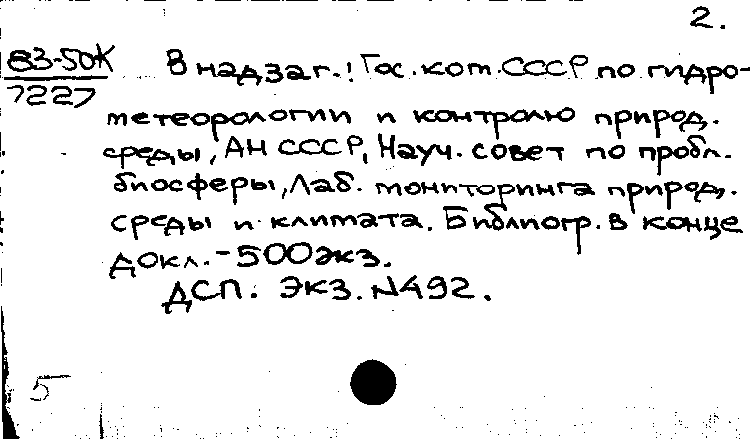 2.
83-50К
7227
В надзаг.: Гос. ком. СССР по гидро-
метеорологии и контролю природ.
среды, АН СССР, Науч. совет по пробл.
биосферы, Лаб. мониторинга природ.
среды и климата. Библиогр. в конце
докл. - 500 экз.
ДСП. Экз. N492.
5